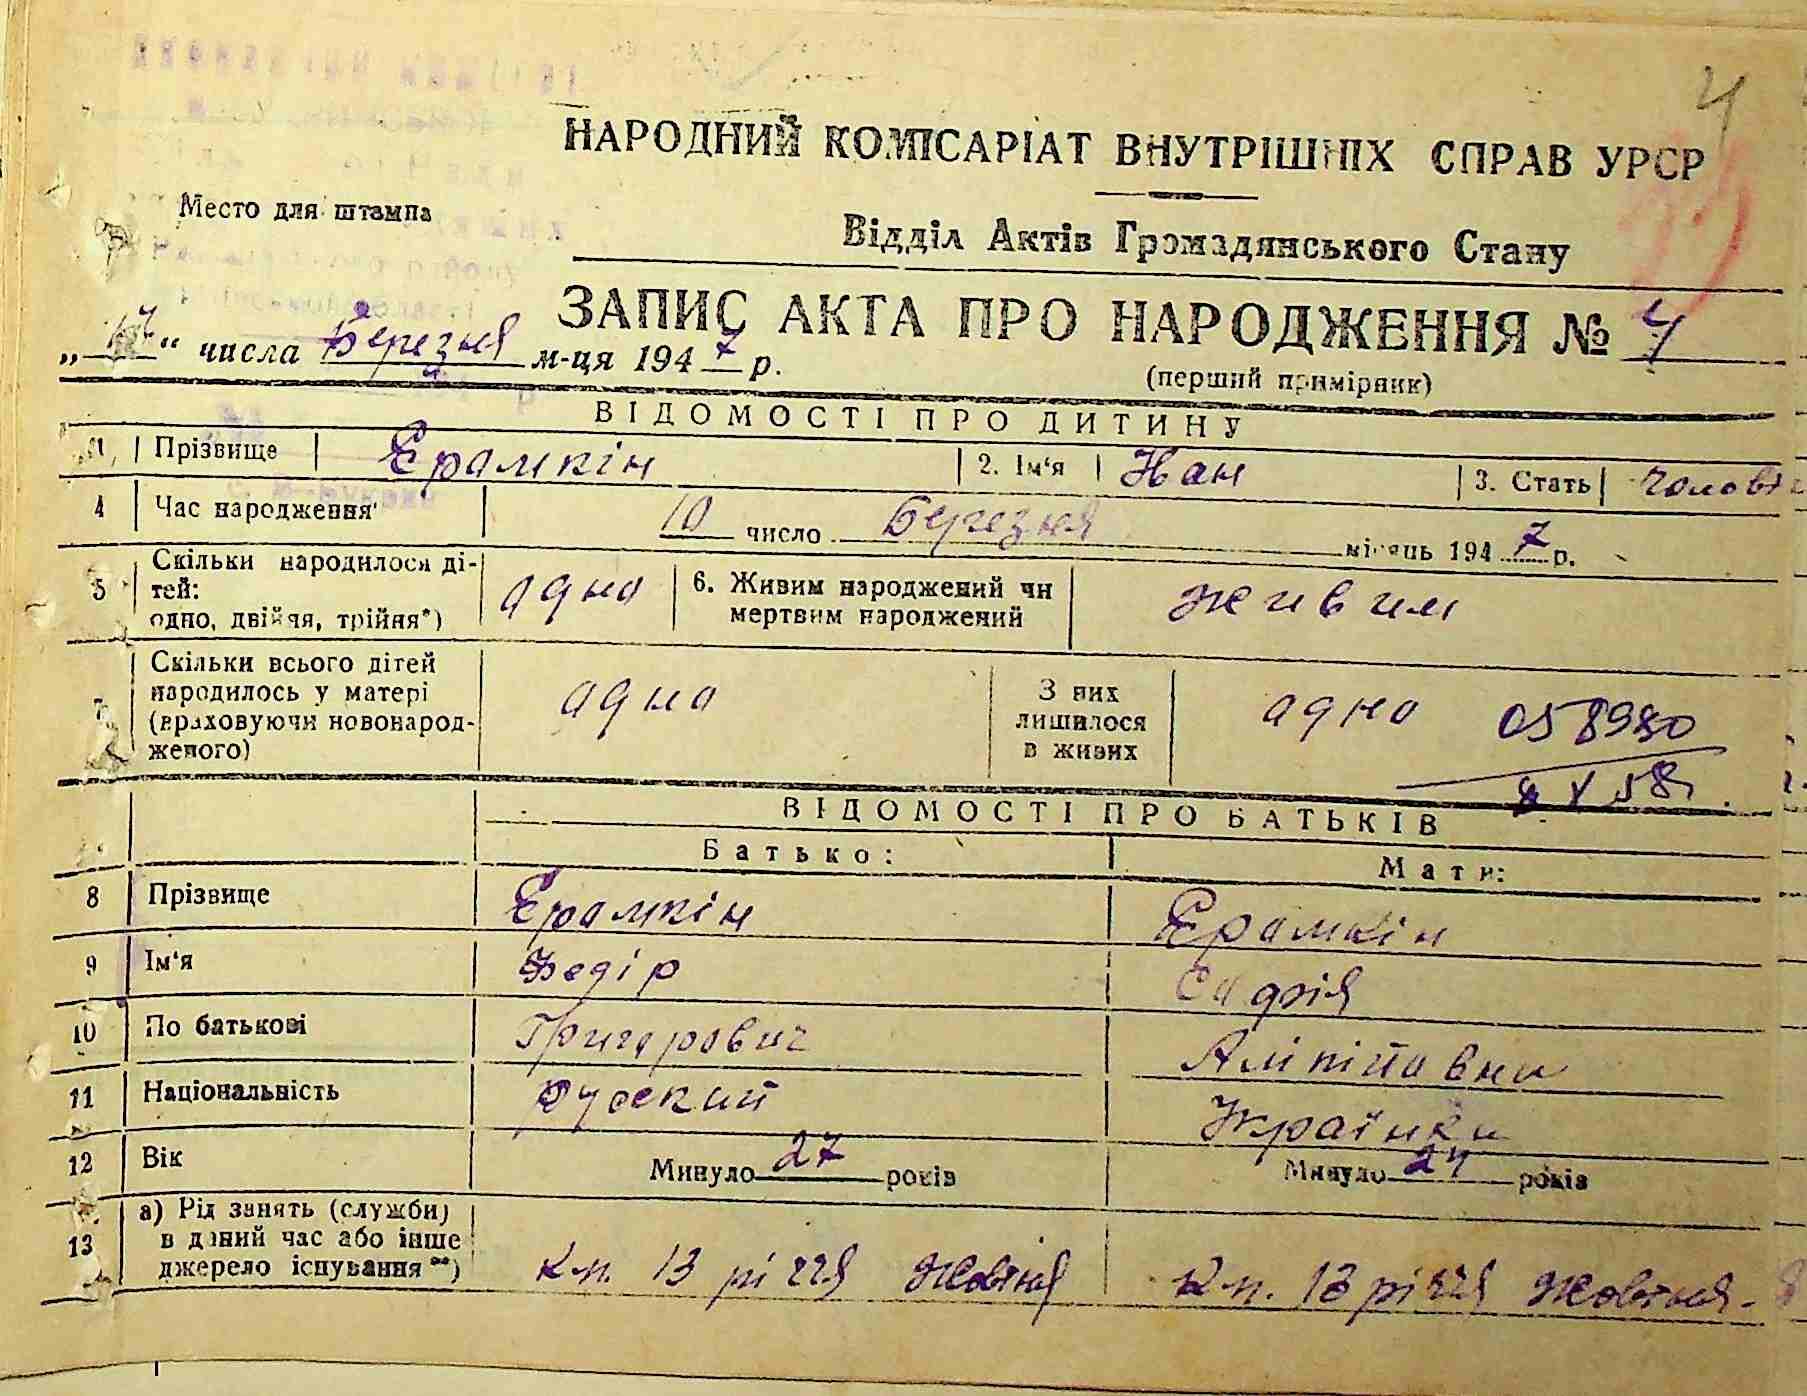 4
НАРОДНИЙ КОМІСАРІАТ ВНУТРІШНІХ СПРАВ УРСР
Место для штампа
Відділ Актів Громадянського Стану
ЗАПИС АКТА ПРО НАРОДЖЕННЯ № 4
„ “ числа Березня м-ця 1947 р.
(перший примірник)
ВІДОМОСТІ ПРО ДИТИНУ
1 Прізвище Ерамкін 2. Ім‘я Иван 3. Стать чолові
4 Час народження 10 число Березня місяць 1947 р.
5 Скільки народилося ді-
тей:
одно, двійня, трійня*) адно 6. Живим народжений чи
мертвим народжений живим
7 Скільки всього дітей
народилось у матері
(враховуючи новонарод-
женого) адно З них
лишилося
в живих адно 058980
V 58
ВІДОМОСТІ ПРО БАТЬКІВ
Батько: Мати:
8 Прізвище Ерамкін Ерамкін
9 Ім‘я Федір Садфія
10 По батькові Григорович Аліпійавни
11 Національність русский Українка
12 Вік Минуло 27 років Минуло 24 років
13 а) Рід занять (служби)
в даний час або інше
джерело існування**) к-п. 13 річчя Жовтня к-п. 13 річчя Жовтня